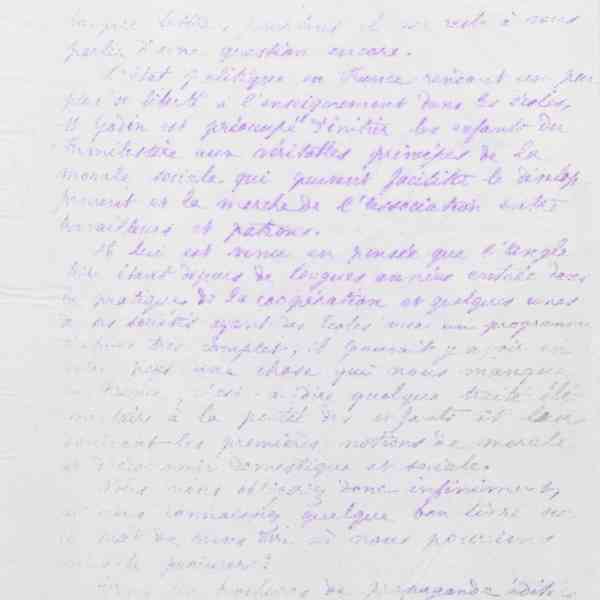 lettre, il me reste à vous
parler d'une question encore.
L'état politique en France rendant un peu
plus de liberté à l'enseignement dans les écoles,
M Godin est préoccupé d'initier les enfants du
Familistère aux véritables principes de la
morale sociale qui peuvent faciliter le dévelop
pement et la marche de l'association entre
travailleurs et patrons.
Il lui est venu en pensée que l'Angle
terre étant depuis de longues années entrée dans
la pratique de la coopération et quelques unes
de ses sociétés ayant des écoles avec un programme
très complet, il pouvait y avoir en
votre pays une chose qui nous manque
en France, c'est-à-dire quelque traité élé
mentaire à la portée des enfants et leur
donnant les premières notions de morale
et d'économie domestique et sociale.
Vous nous obligeriez donc infiniment,
si vous connaissiez quelque bon livre
le mot de nous dire où nous pourrions
procurer?
de propagande